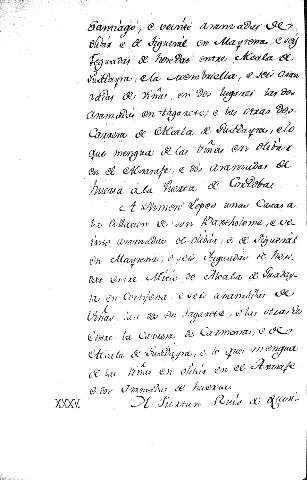 Santiago, e veinte aranzadas de
olibar e de Figueral en Mayrena, e seis
Yuguadas de heredat entre Alcala de
Guadayra, e la Membrilla, e seis aran
zadas de Viñas, en dos lugares las dos
aranzadas en Tagarete, e las otras dos
Carrera de Alcala de Guadayra, e lo
que mengua de las Viñas en olibar
en el Axarafe, e dos aranzadas de
huerta a la Puerta de Cordoba.
A Ximen Lopes unas Casas a
la collacion de San Bartholome, e ve
inte aranzadas de olibar, e de Figueral
en Mayrena, e seis Yuguadas de here
dat entre de Alcala de Guaday
ra en e seis aranzadas de
Viñas las dos en Tagarete, e las otras dos
entre la Carrera de Carmona, e de
Alcala de Guadayra, e lo que mengua
de las Viñas en olibar en el Axarafe
e dos aranzadas de huerta.
XXXV. A Ruis de